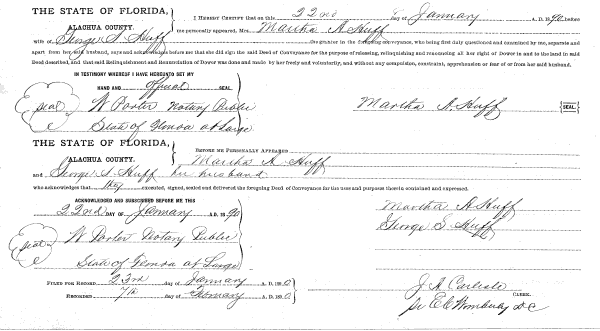 THE STATE OF FLORIDA,
ALACHUA COUNTY.
I HEREBY CERTIFY that on this 22nd day of January A. D. 1890 before
me personally appeared, Mrs. Martha A. Huff
wife of George S. Huff the grantor in the foregoing conveyance, who being first duly questioned and examined by me, separate and
apart from her said husband, says and acknowledges before me that she did sign the said Deed of Conveyance for the purpose of releasing, relinquishing and renouncing all her right of Dower in and to the land in said
Deed described, and that said Relinquishment and Renunciation of Dower was done and made by her freely and voluntarily, and without any compulsion, constraint, apprehension or fear of or from her said husband.
IN TESTIMONY WHEREOF I HAVE HEREUNTO SET MY
HAND AND official SEAL.
seal
W Porter Notary Public
State of Florida at Large
Martha A. Huff [SEAL.
THE STATE OF FLORIDA,
ALACHUA COUNTY.
BEFORE ME PERSONALLY APPEARED
Martha A. Huff
and George S. Huff her husband
who acknowledges that they executed, signed, sealed and delivered the foregoing Deed of Conveyance for the uses and purposes therein contained and expressed.
ACKNOWLEDGED AND SUBSCRIBED BEFORE ME THIS
22nd DAY OF January A. D. 1890
seal
W Porter Notary Public
State of Florida at Large
Martha A. Huff
George S. Huff
FILED FOR RECORD 23rd day of January A. D. 1890
RECORDED 7th day of February A. D. 1890
J. A. Carlisle
CLERK.
D C